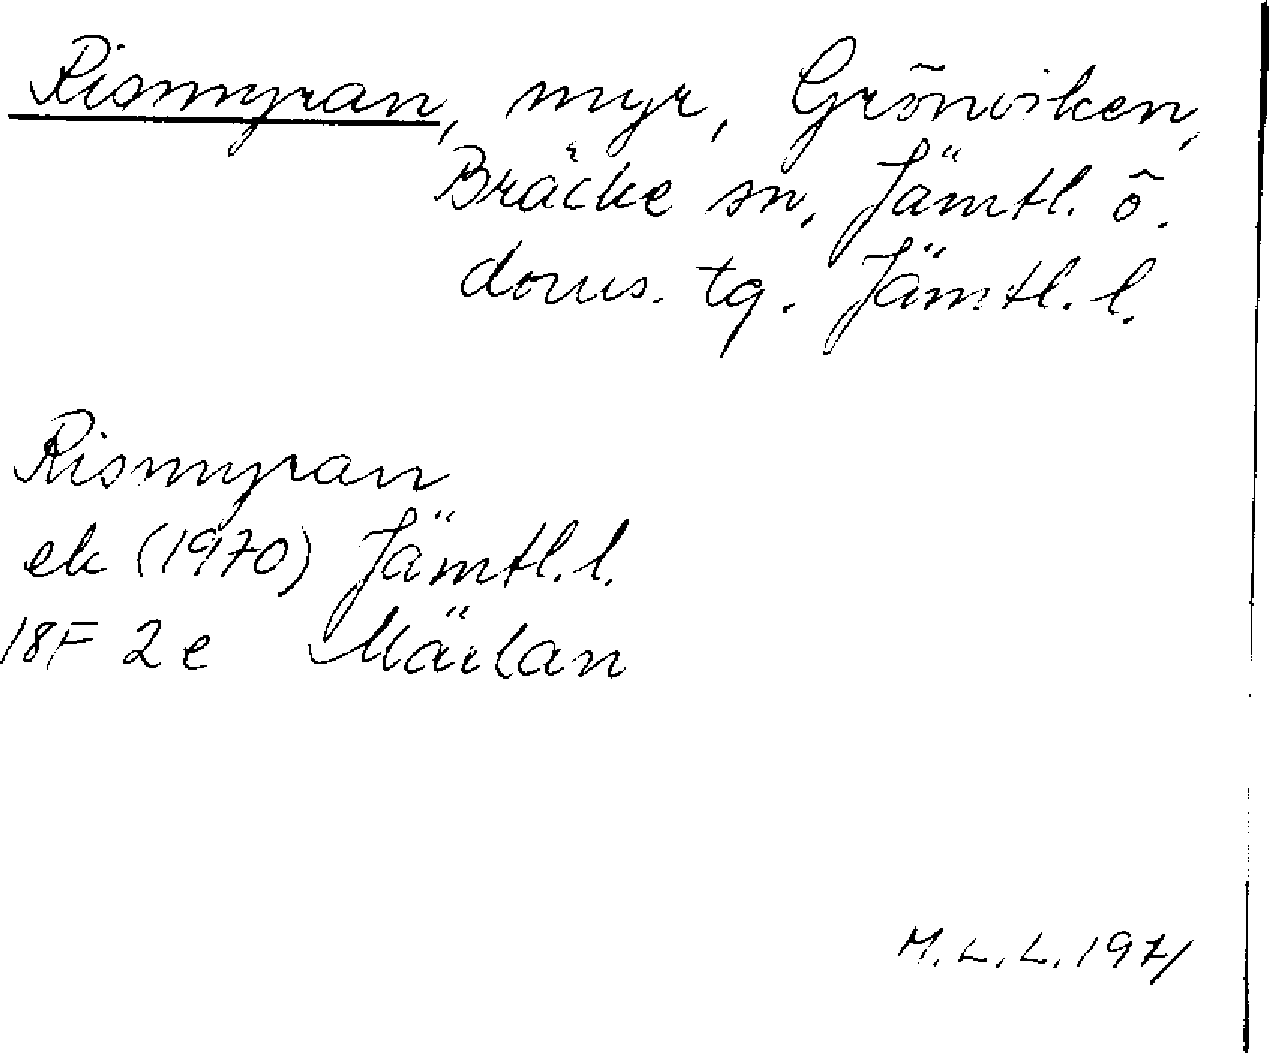 Rismyran, myr, Grönviken,
Bräcke sn, Jämtl. ö.
doms. tg. Jämtl. l.
Rismyran
ek (1970) Jämtl. l.
18F 2e Märlan
M. L. L. 1971